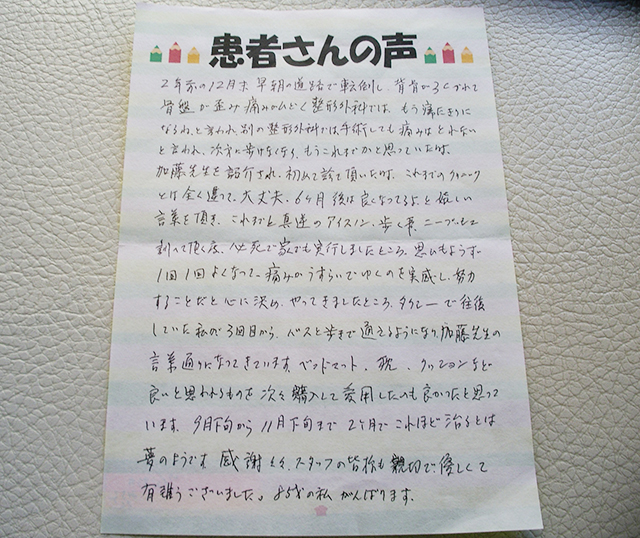 患者さんの声
2年前の12月末 早朝の道路で転倒し、背骨がつぶれて
骨盤が歪み痛みがひどく整形外科では、もう寝たきりに
なるねと言われ、別の整形外科では手術しても痛みはとれない
と言われ、次第に歩けなくなり、もうこれまでかと思っていた時
加藤先生を紹介され、初めて診て頂いた時は、これまでのクリニック
とは全く違って、大丈夫、6ヶ月後は良くなってるよと嬉しい
言葉を頂き、これまでと真逆のアイスノン、歩く事、
割って頂く度、必死で家でも実行しましたところ、思いもよらず
1回1回よくなって、痛みがうすらいでゆくのを実感し、努力
することだと心に決め、やってきましたところ、タクシーで往復
していた私が3回目から、バスと歩きで通えるようになり、加藤先生の
言葉通りになってきています。ベッドマット、枕、クッションなど
良いと思われるものを次々購入して愛用したのも良かったと思って
います。9月下旬から11月下旬まで2ヶ月でこれほど治るとは
夢のようです。感謝々々、スタッフの皆様も親切で優しくて
有難うございました。85歳の私がんばります。